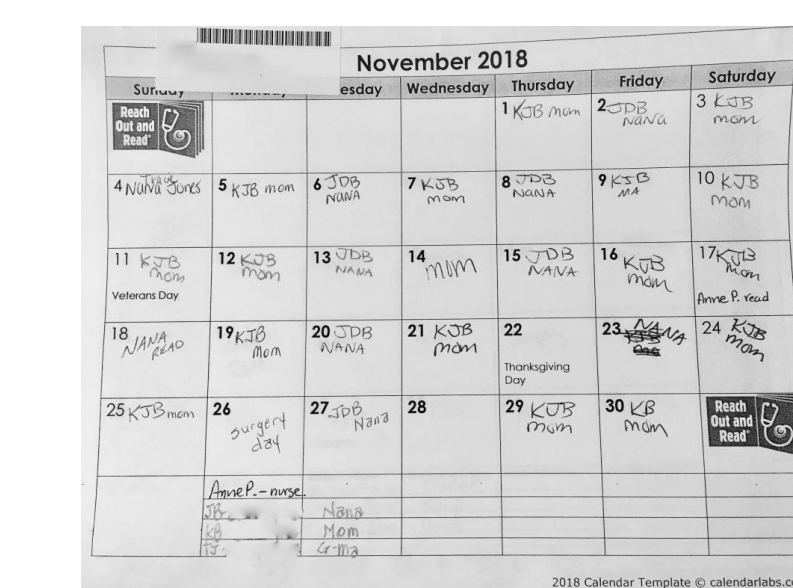 November 2018
Sunday esday Wednesday Thursday Friday Saturday
Reach
Out and
Read
1 KJB mom
2 JDB
NANA
3 KJB
mom
4 NANA Jones
5 KJB mom
6 JDB
NANA
7 KJB
mom
8 JDB
NANA
9 KJB
MA
10 KJB
mom
11 KJB
mom
Veterans Day
12 KJB
mom
13 JDB
NANA
14
mom
15 JDB
NANA
16
KJB
mom
17 KJB
mom
Anne P. read
18
NANA
READ
19 KJB
mom
20 JDB
NANA
21 KJB
mom
22
Thanksgiving
Day
23 NANA
24 KJB
mom
25 KJB mom
26
surgery
day
27 JDB
Nana
28
29 KJB
mom
30 KB
mom
Reach
Out and
Read
Anne P. - nurse
JB Nana
KB Mom
TJ G-ma
2018 Calendar Template © calendarlabs.c